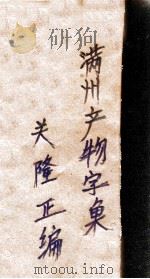 满州产物字彙
关隆正编
mtoou.info